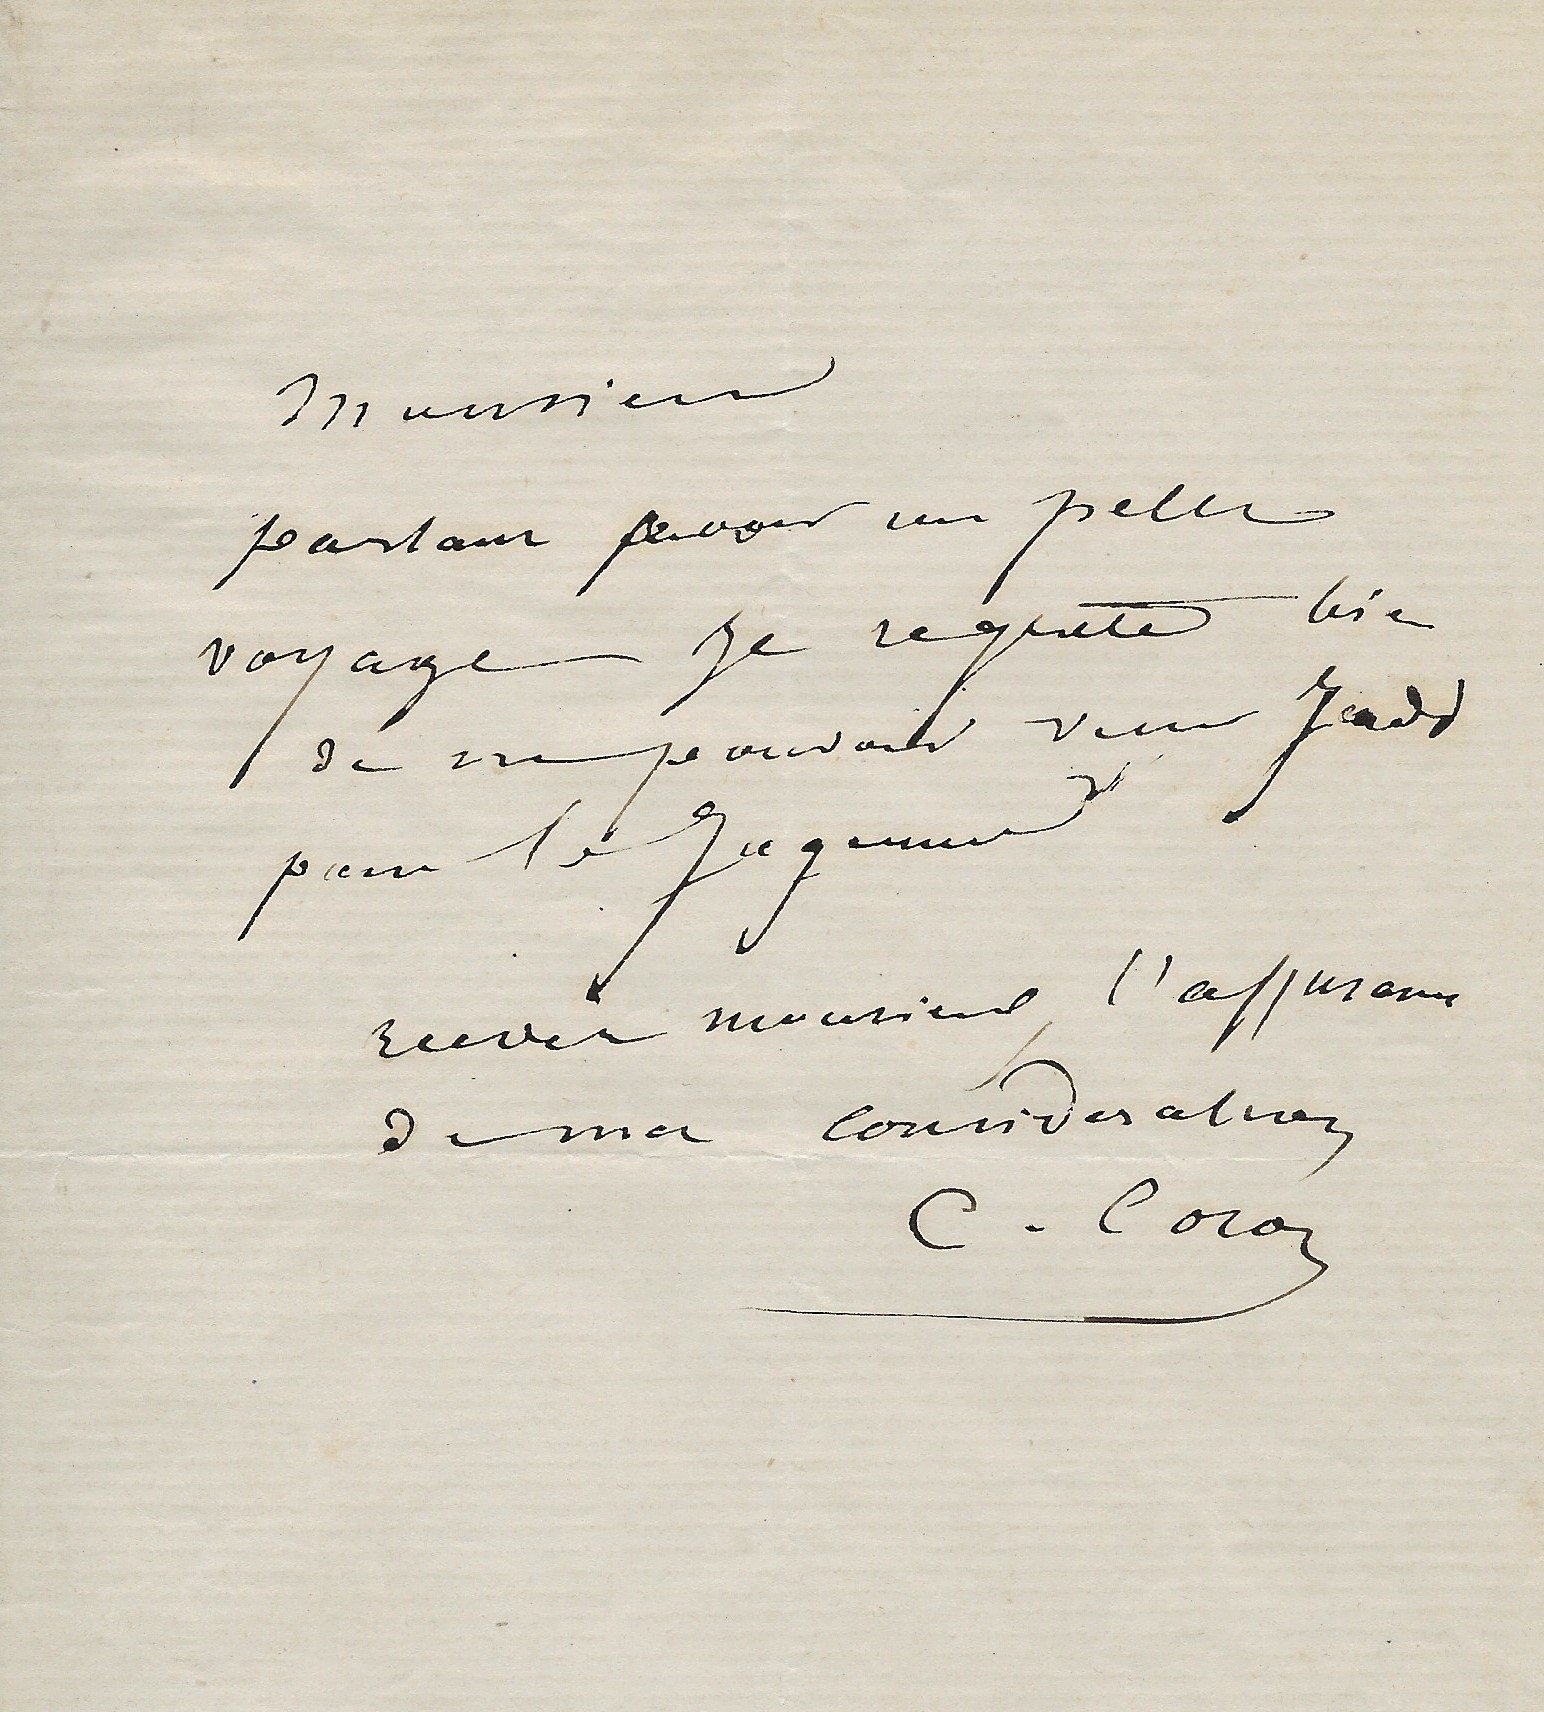 Monsieur
partant pour un petit
voyage je regrette bien
de ne pouvoir venir jeudi
pour le jugement
recevez monsieur l'assurance
de ma consideration
C. Corot